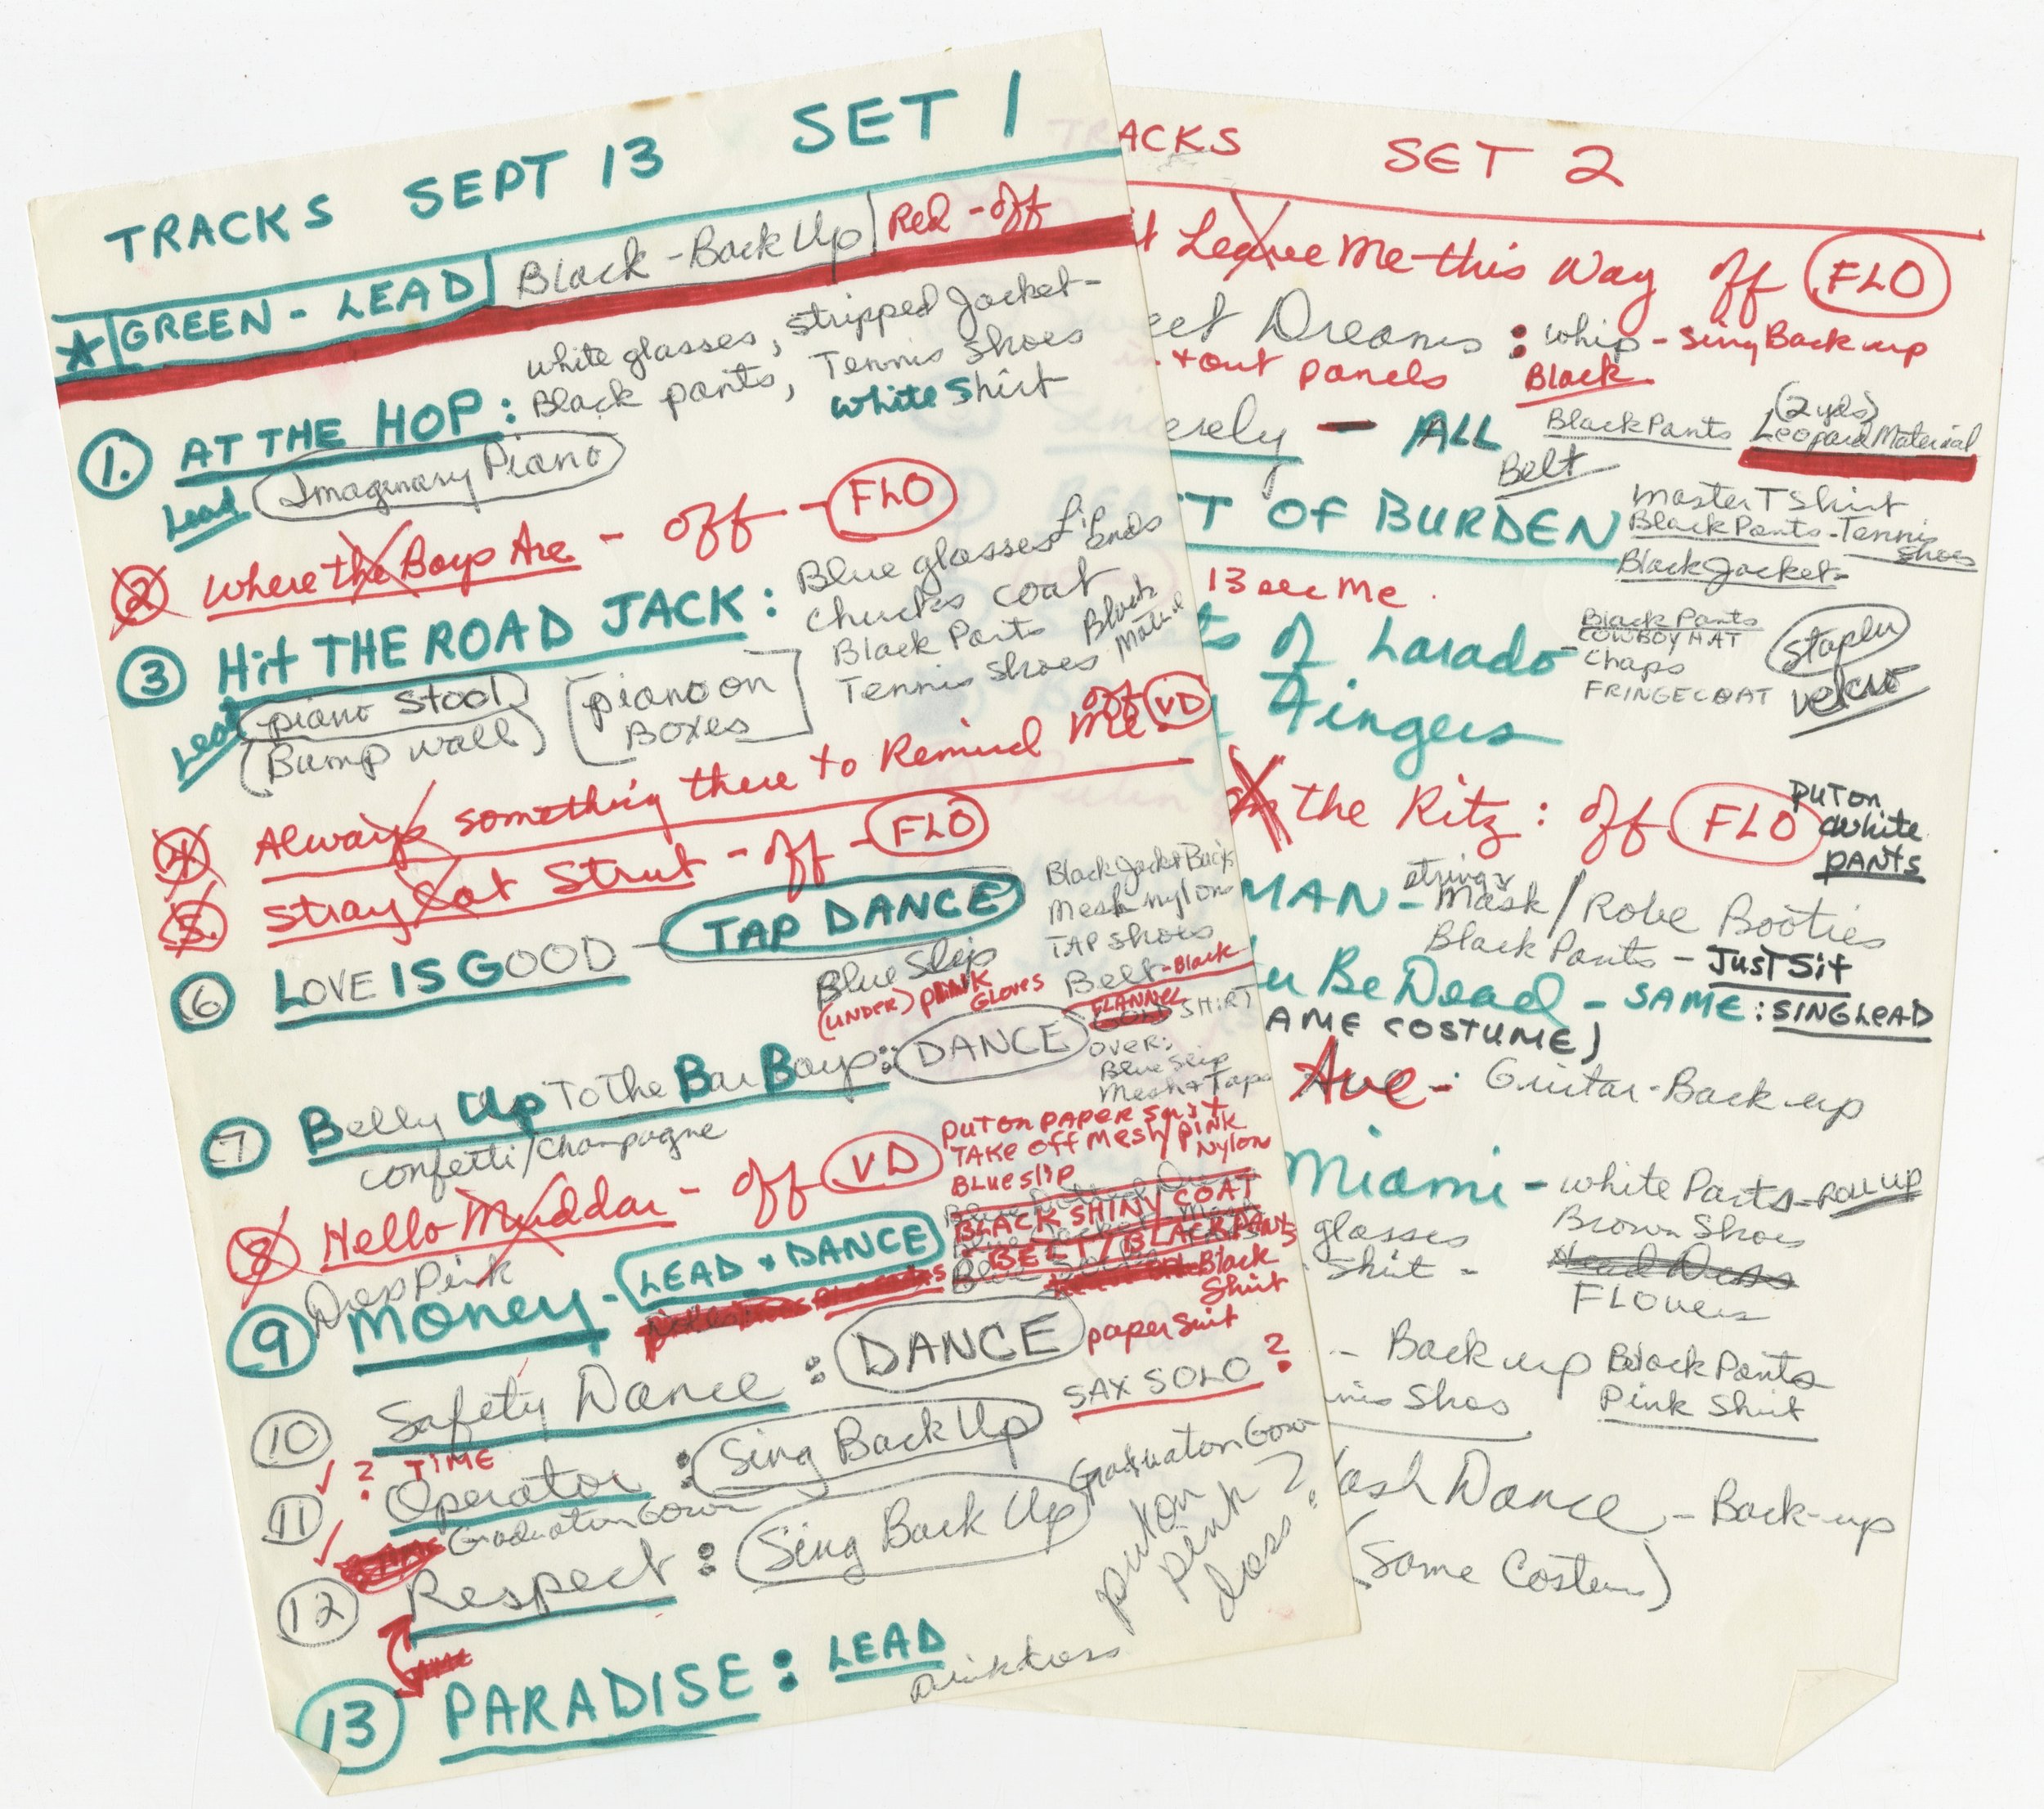 TRACKS SEPT 13 SET 1
★ GREEN - LEAD Black - Back Up Red - off
1. AT THE HOP: white glasses, stripped Jacket -
Black pants, Tennis Shoes
white Shirt
Lead Imaginary Piano
2 Where the Boys Are - off - FLO
3 Hit THE ROAD JACK: Blue glasses
Chucks coat
Black Pants Black
Tennis Shoes
Lead piano stool
(Bump wall) [piano on
BOXES]
4 Always something there to Remind Me off VD
5. Stray Cat Strut - off - FLO
6 LOVE IS GOOD - TAP DANCE
Mesh nylons
TAP Shoes
Blue Slip
(UNDER) pink GLOVES
Belt - Black
FLANNEL SHIRT
OVER:
Blue Slip
Mesh + Taps
7 Belly Up To The Bar Boys: DANCE
Confetti/Champagne
8 Hello Muddar - off VD
PUT ON PAPER Suit
TAKE OFF MESH/PINK
Nylon
BLUE slip
BLACK SHINY COAT
BELT/BLACK PANTS
Black
Shirt
Drop Pink
9 Money - LEAD + DANCE
10 Safety Dance: DANCE paper Suit
SAX SOLO ?
? TIME
11 Operator: Sing Back Up Graduation Gown
Graduation Gown
12 Respect: Sing Back Up
put on
pink
dress?
13 PARADISE: LEAD
Pink dress
TRACKS SET 2
Leave Me this Way off FLO
eet Dreams: whip - Sing Back up
+ out panels Black
erely - ALL Black Pants (2 yds)
Leopard Material
Belt
T OF BURDEN Master T Shirt
Black Pants - Tennis
Shoes
Black Jacket -
13 see Me.
ts of Larado - Black Pants
COWBOY HAT
Chaps
FRINGE COAT
Stapler
velcro
Fingers
on the Ritz: off FLO PUT ON
white
PANTS
MAN - strings
Mask / Robe Booties
Black Pants - JUST Sit
u Be Dead - SAME: SING LEAD
AME COSTUME)
Ave -: Guitar - Back up
Miami - white Pants - ROLL UP
glasses Brown Shoes
Shirt - Head Dress
FLOWERS
- Back up Black Pants
nnis Shoes Pink Shirt
ash Dance - Back-up
(Same Costume)